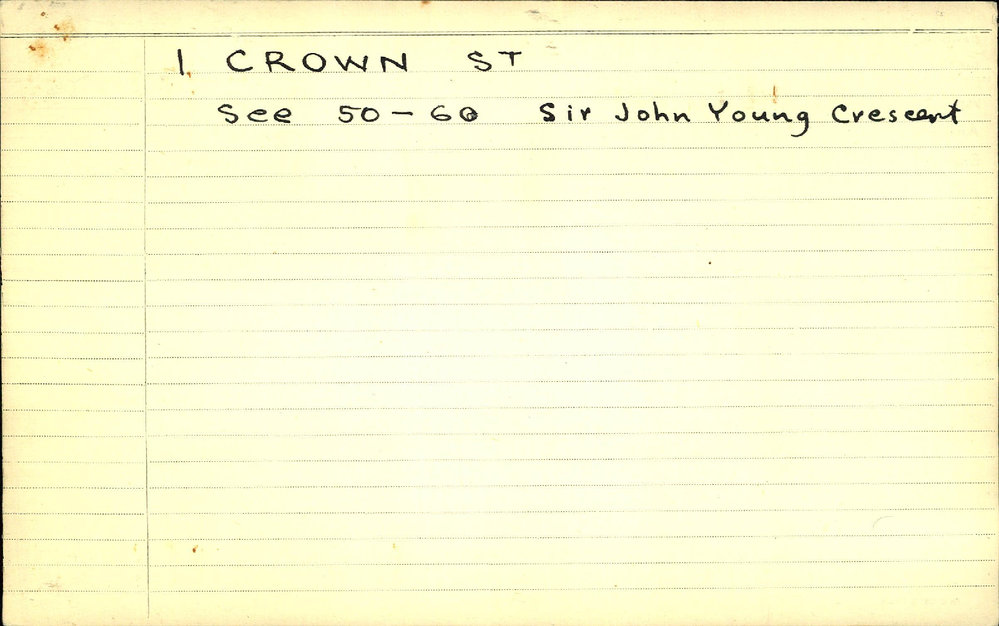 1 CROWN ST
See 50 - 60 Sir John Young Crescent